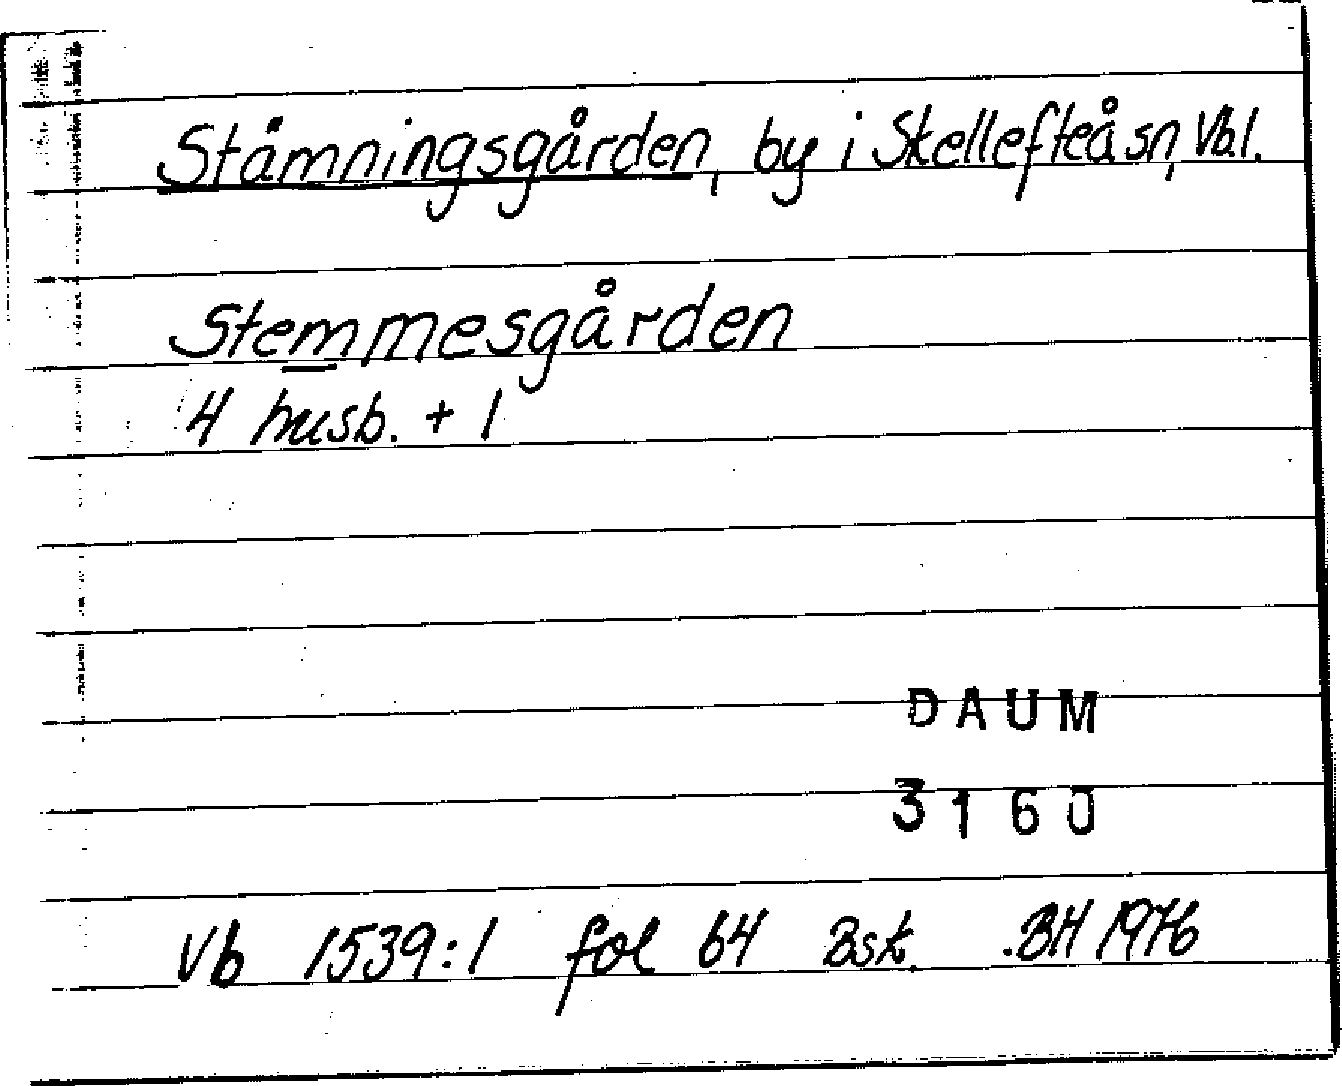 Stämningsgården, by i Skellefteå sn, Vb.l.
Stemmesgården
4 husb. + 1
DAUM
3160
Vb 1539:1 fol 64 Bsk. BH 1976